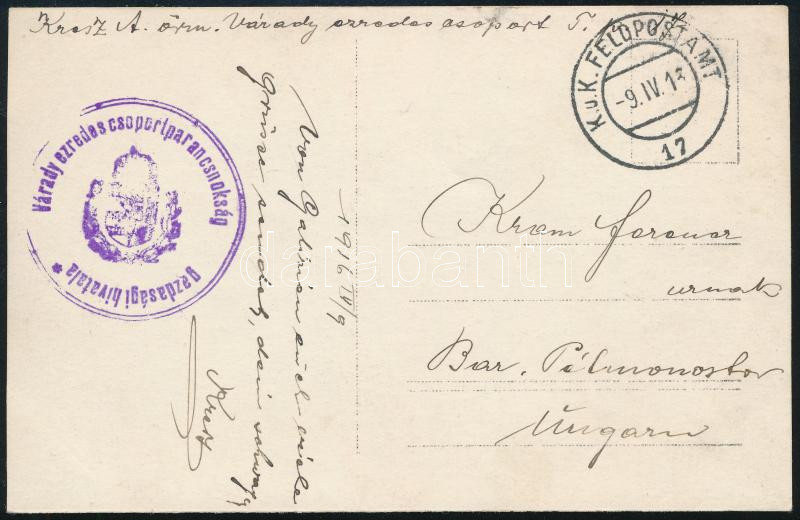 Kresz A. örm. Várady ezredes csoport T.
K.u.K. FELDPOSTAMT
-9.IV.1
17
Várady ezredes csoportparancsnokság
gazdasági hivatala *
1916 IV/9
Von Galizien euch viele
Grüsse sendet, dein schwag
Kresz
darabanth
Krem Ferenc
urnak
Bar. Pélmonostor
Ungarn